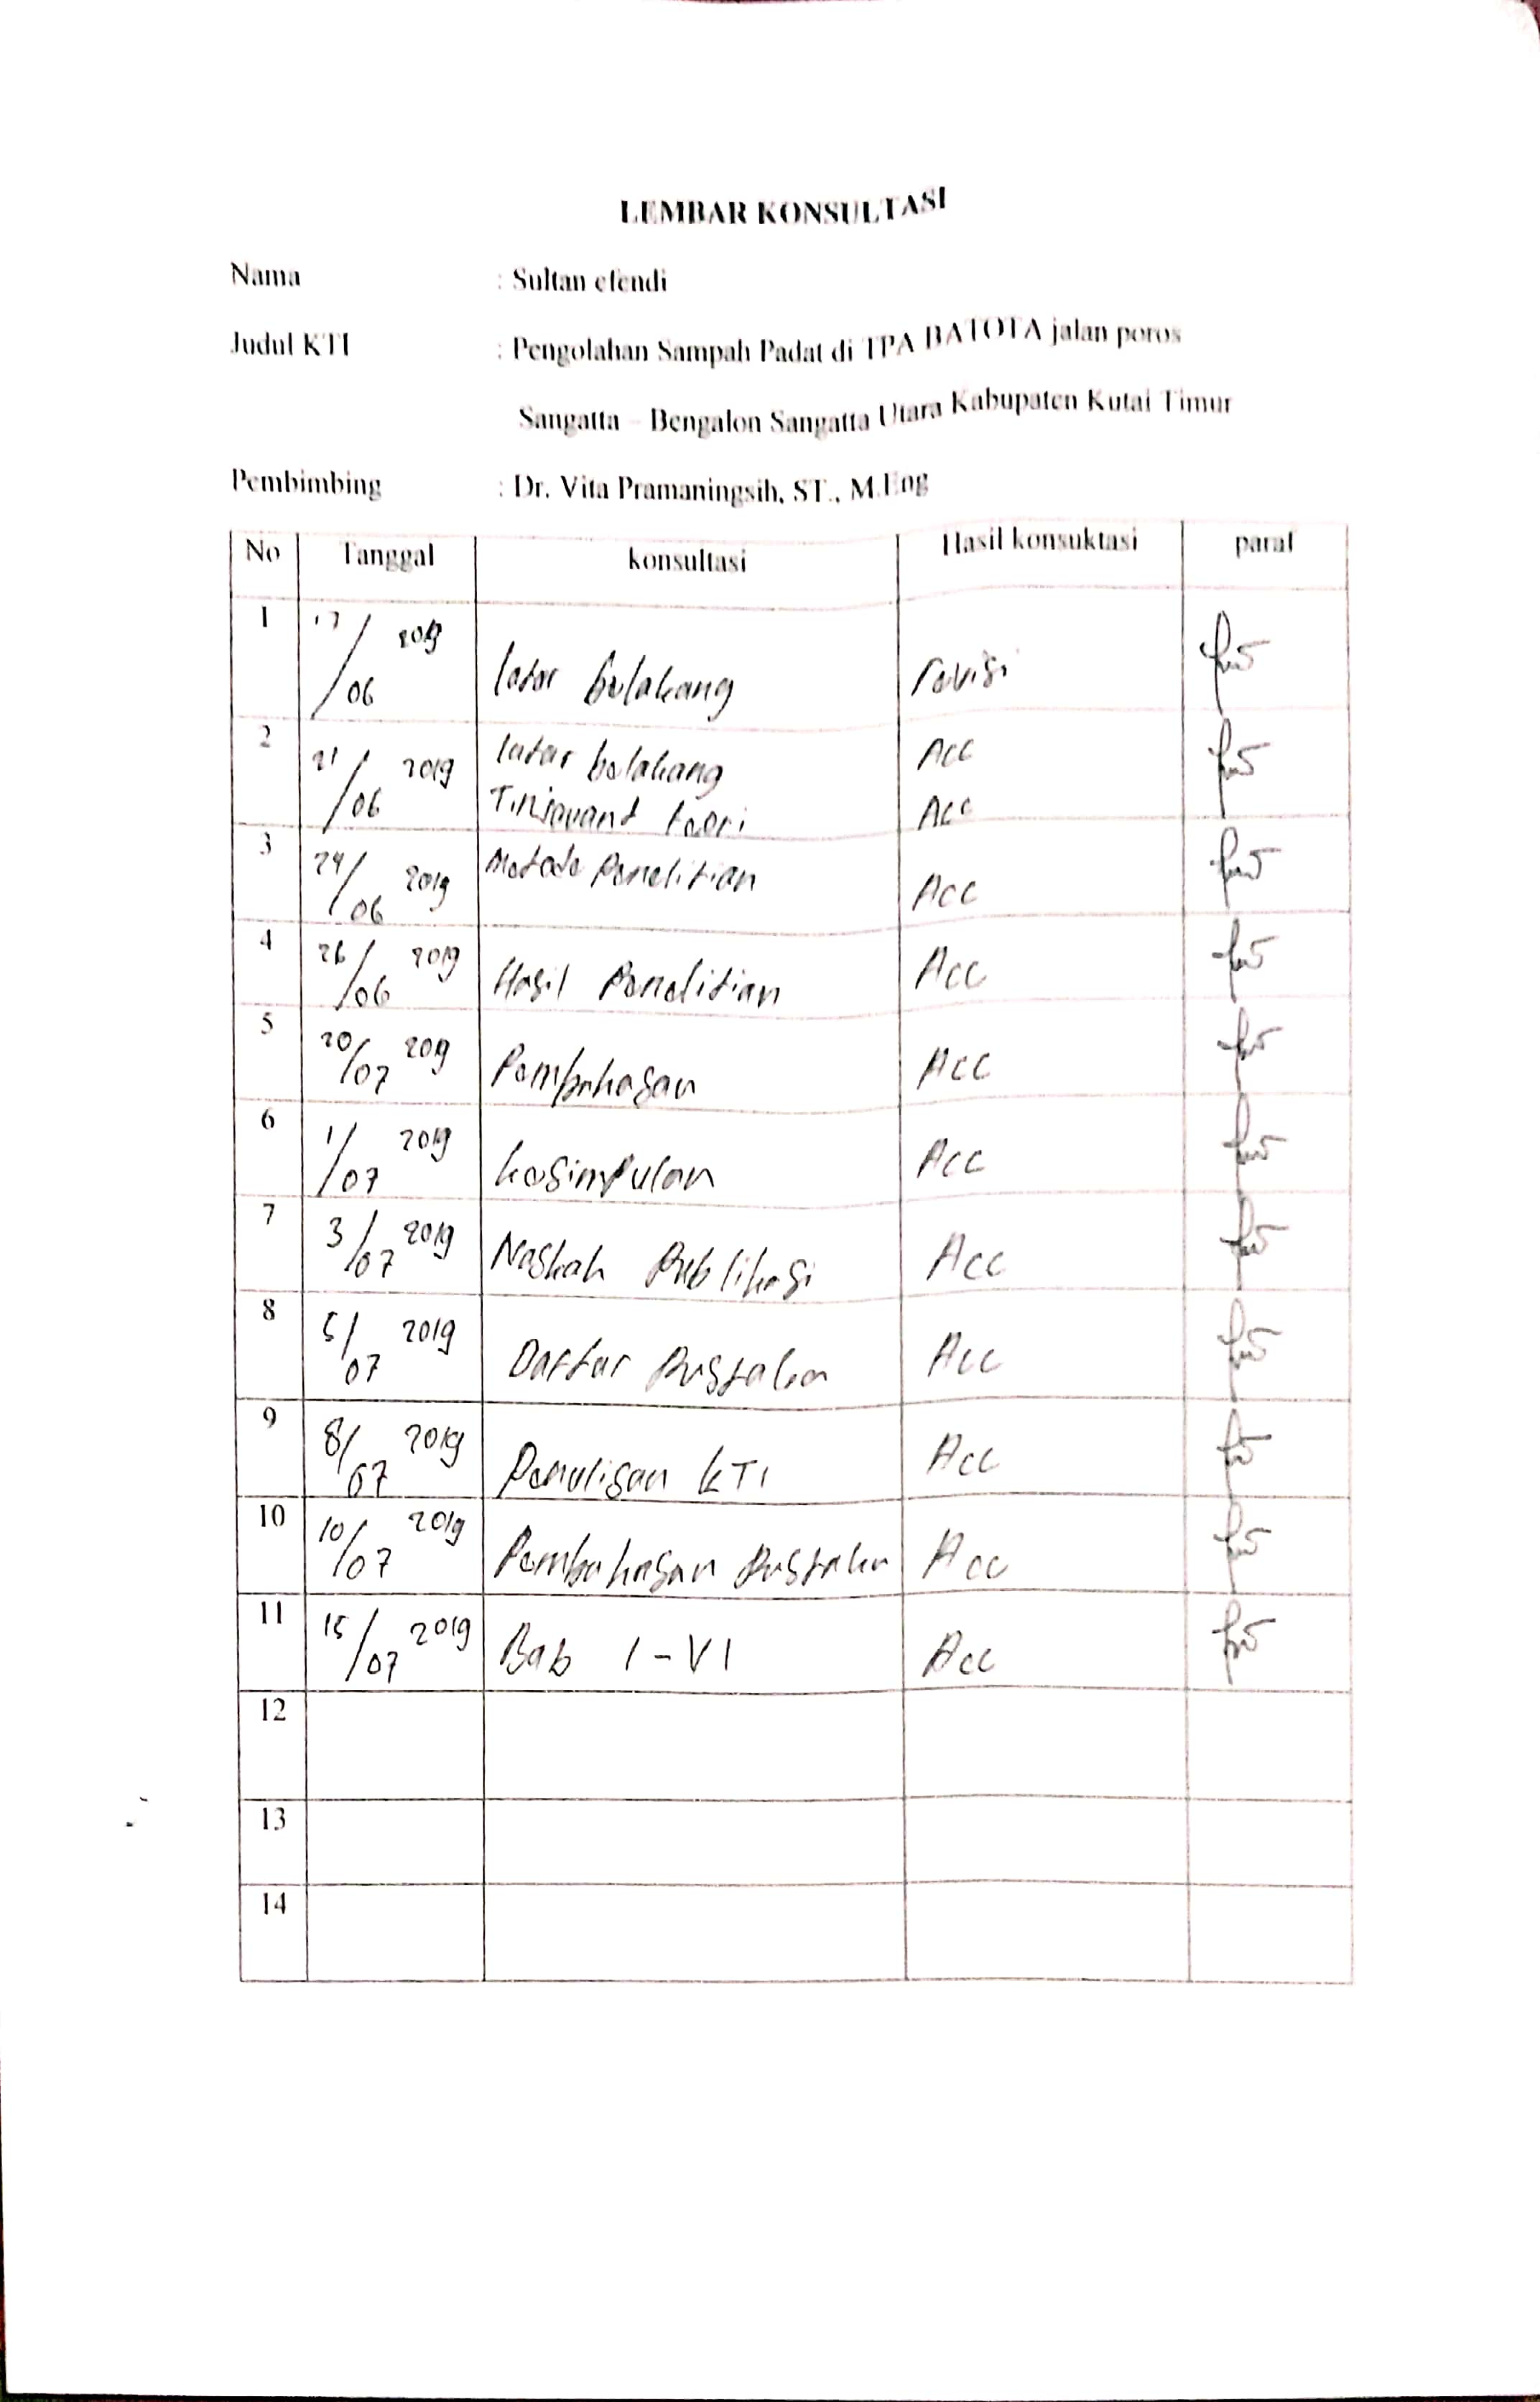 LEMBAR KONSULTASI
Nama : Sultan efendi
Judul KTI : Pengolahan Sampah Padat di TPA BATOTA jalan poros
Sangatta – Bengalon Sangatta Utara Kabupaten Kutai Timur
Pembimbing : Dr. Vita Pramaningsih, ST., M.Eng
No Tanggal konsultasi Hasil konsuktasi paraf
1 17/06 2019 latar belakang revisi
2 21/06 2019 latar belakang Acc
teori Acc
3 24/06 2019 Metode Penelitian Acc
4 26/06 2019 Hasil Penelitian Acc
5 /07 2019 Pembahasan Acc
6 1/07 2019 kesimpulan Acc
7 3/07 2019 Naskah Publikasi Acc
8 5/07 2019 Daftar Pustaka Acc
9 8/07 2019 Penulisan KTI Acc
10 10/07 2019 Pembahasan Pustaka Acc
11 15/07 2019 Bab I - VI Acc
12
13
14